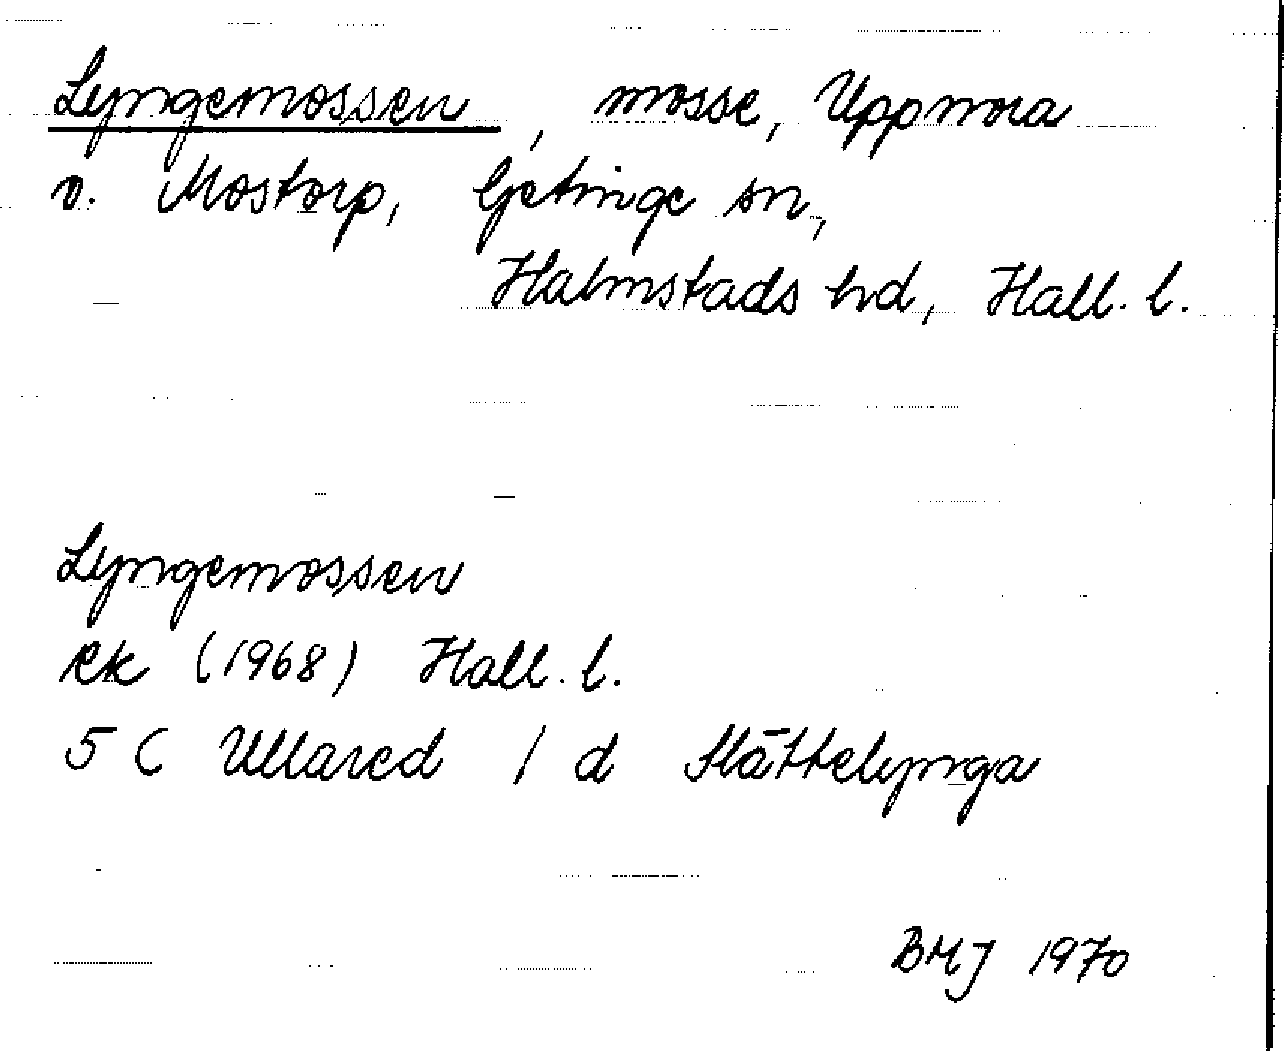 Lyngemossen, mosse, Uppnora
v. Mostorp, Getinge sn,
Halmstads hd, Hall. l.
Lyngemossen
ek (1968) Hall. l.
5 C Ullared 1 d Slättelynga
BMJ 1970